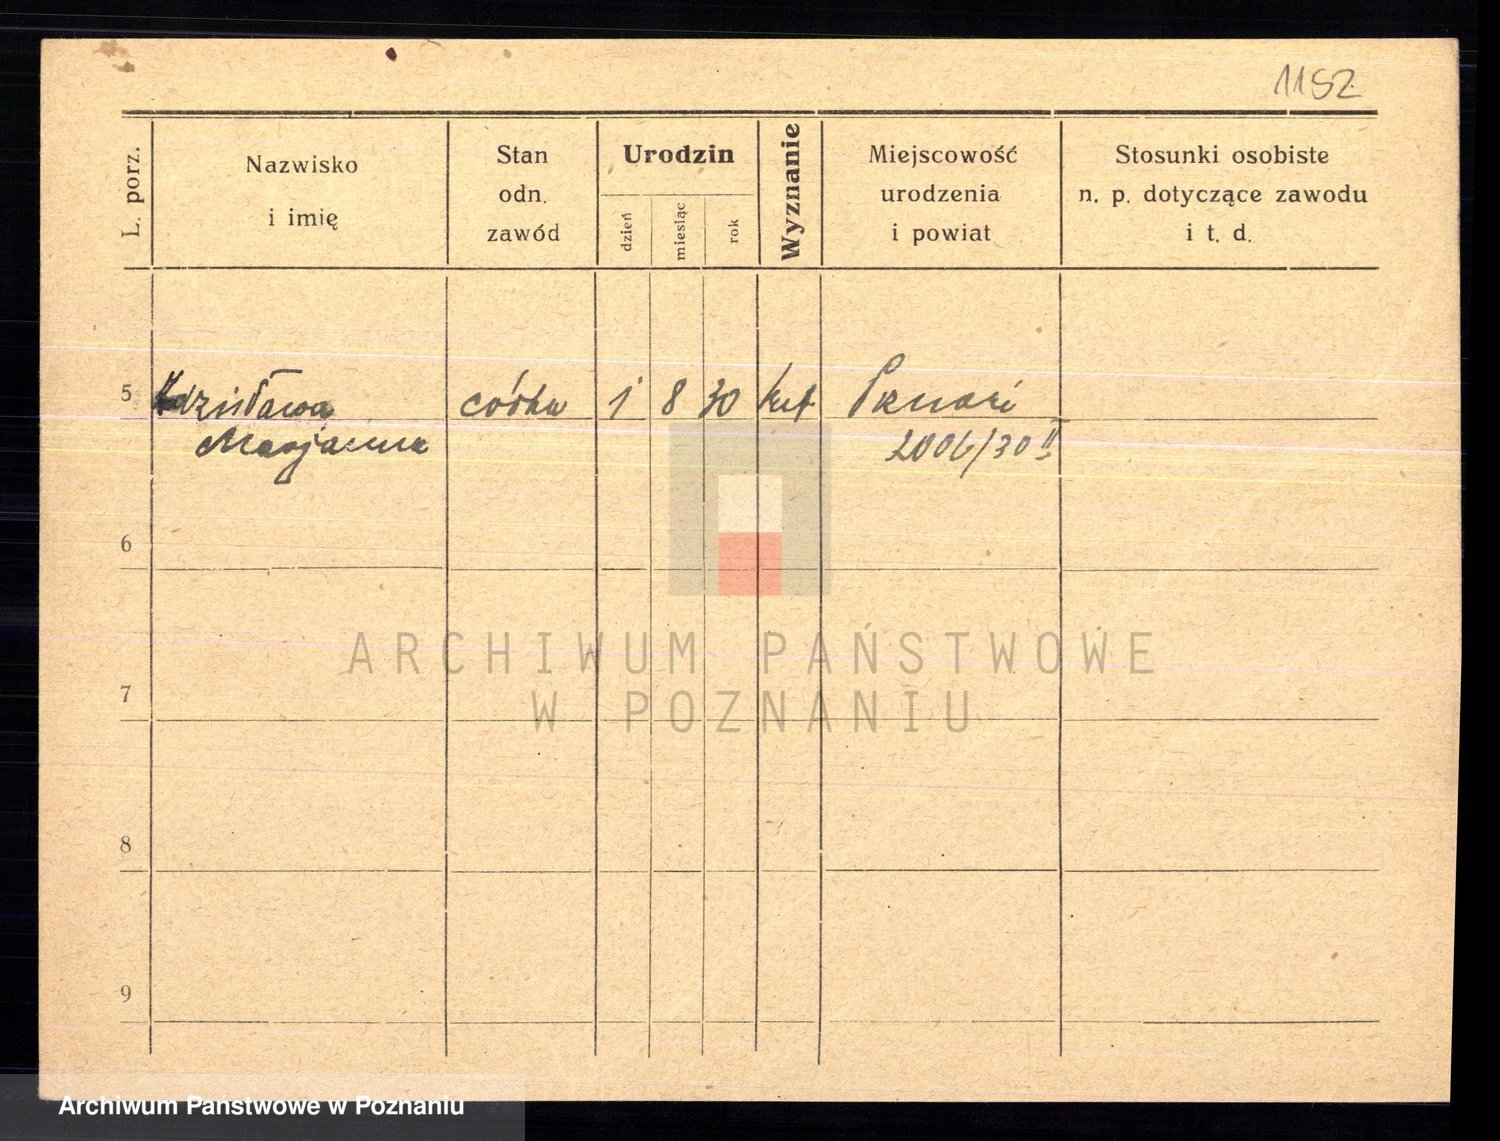 1152
L. porz.
Nazwisko
i imię
Stan
odn.
zawód
Urodzin
dzień
miesiąc
rok
Wyznanie
Miejscowość
urodzenia
i powiat
Stosunki osobiste
n. p. dotyczące zawodu
i t. d.
5 Zdzisława córka 1 8 30 kat
Marjanna 2006/30 II
6
7
8
9
ARCHIWUM PAŃSTWOWE
W POZNANIU
Archiwum Państwowe w Poznaniu